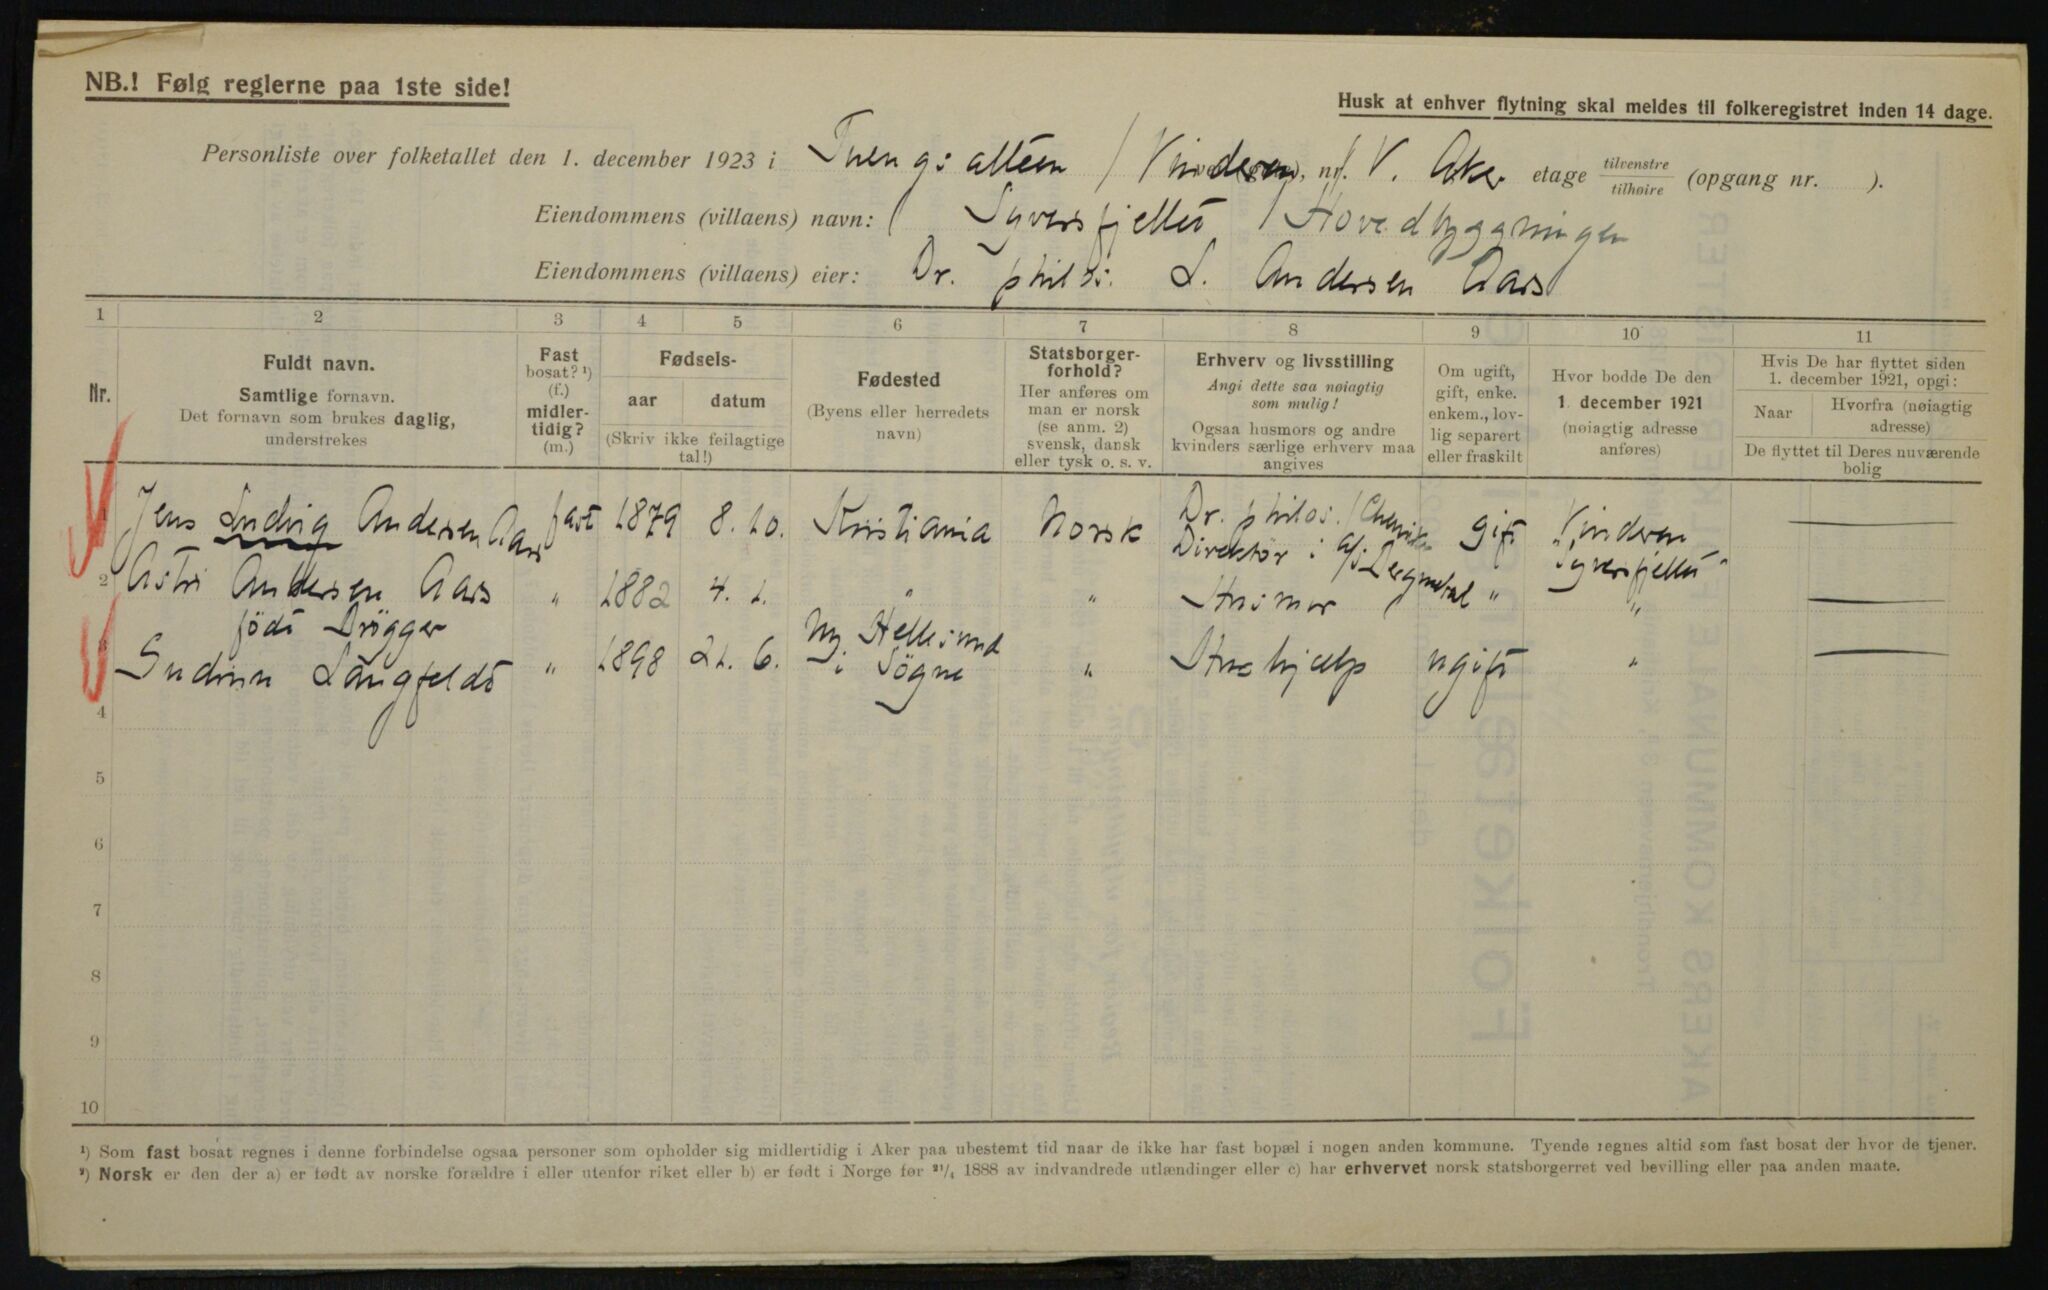 NB.! Følg reglerne paa 1ste side!
Husk at enhver flytning skal meldes til folkeregistret inden 14 dage.
Personliste over folketallet den 1. december 1923 i Tuengs alléen / Vinderen, nr. V. Aker etage tilvenstre tilhøire (opgang nr. ).
Eiendommens (villaens) navn: Syversfjellet / Hovedbyggningen
Eiendommens (villaens) eier: Dr. philos. L. Andersen Aars
1 2 3 4 5 6 7 8 9 10 11
Nr.
Fuldt navn.
Samtlige fornavn.
Det fornavn som brukes daglig,
understrekes
Fast
bosat? ¹)
(f.)
midler-
tidig?
(m.)
Fødsels-
aar datum
(Skriv ikke feilagtige
tal!)
Fødested
(Byens eller herredets
navn)
Statsborger-
forhold?
Her anføres om
man er norsk
(se anm. 2)
svensk, dansk
eller tysk o. s. v.
Erhverv og livsstilling
Angi dette saa nøiagtig
som mulig!
Ogsaa husmors og andre
kvinders særlige erhverv maa
angives
Om ugift,
gift, enke.
enkem., lov-
lig separert
eller fraskilt
Hvor bodde De den
1. december 1921
(nøiagtig adresse
anføres)
Hvis De har flyttet siden
1. december 1921, opgi:
Naar
Hvorfra (nøiagtig
adresse)
De flyttet til Deres nuværende
bolig
1 Jens Ludvig Andersen Aars fast 1879 8. 10. Kristiania Norsk Dr. philos. / Chemiker Direktør i a/s Dergmetal gift Vinderen "Syversfjellet"
2 Astri Andersen Aars " 1882 4. 1. " " Husmor " "
født Drøgger
3 Gudrun Langfeldt " 1898 21. 6. Ny Hellesund i Søgne " Hushjælp ugift "
4
5
6
7
8
9
10
¹) Som fast bosat regnes i denne forbindelse ogsaa personer som opholder sig midlertidig i Aker paa ubestemt tid naar de ikke har fast bopæl i nogen anden kommune. Tyende regnes altid som fast bosat der hvor de tjener.
²) Norsk er den der a) er født av norske forældre i eller utenfor riket eller b) er født i Norge før ²¹/₄ 1888 av indvandrede utlændinger eller c) har erhvervet norsk statsborgerret ved bevilling eller paa anden maate.